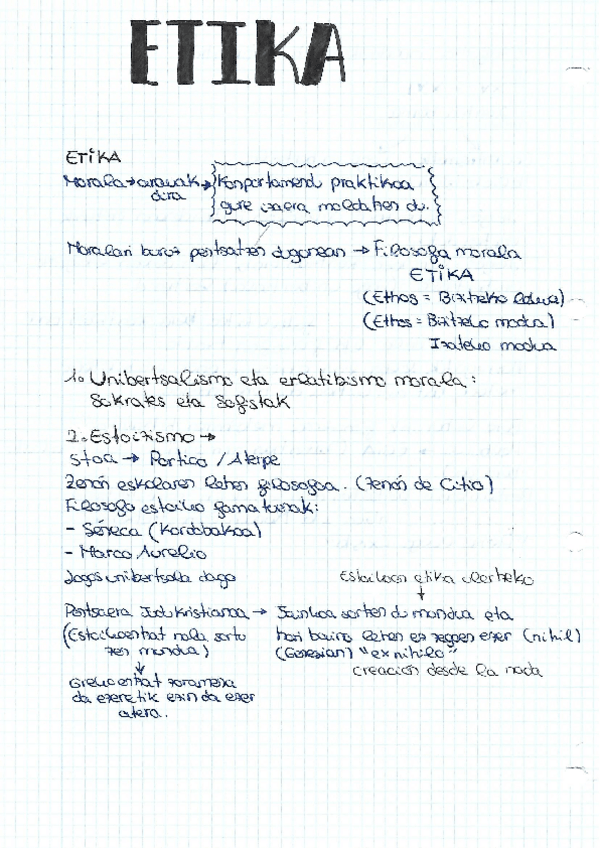 ETIKA
ETIKA
Morala → arauak → Konportamendu praktikoa
dira gure izaera moldatzen du.
Moralari buruz pentsatzen dugunean → Filosofia morala
ETIKA
(Ethos = Bizitzeko lekua)
(Ethos = Bizitzeko modua)
Izateko modua
1. Unibertsalismo eta erlatibismo morala:
Sokrates eta Sofistak
2. Estoizismo →
Stoa → Portico / Aterpe
Zenón eskolaren lehen filosofoa. (Zenón de Citio)
Filosofo estoiko gomatarrak:
- Séneca (Kordobakoa)
- Marco Aurelio
Logos unibertsala dago
Estoikoen etika ulertzeko
↓
Pentsaera Judukristiarra → Jainkoa sortzen du mundua eta
(Estoikoentzat nola sortu hori baino lehen ez zegoen ezer (nihil)
zen mundua) (Genesian) "ex nihilo"
↓ creación desde la nada
Grekoentzat
da ezeretik ezin da ezer
atera.